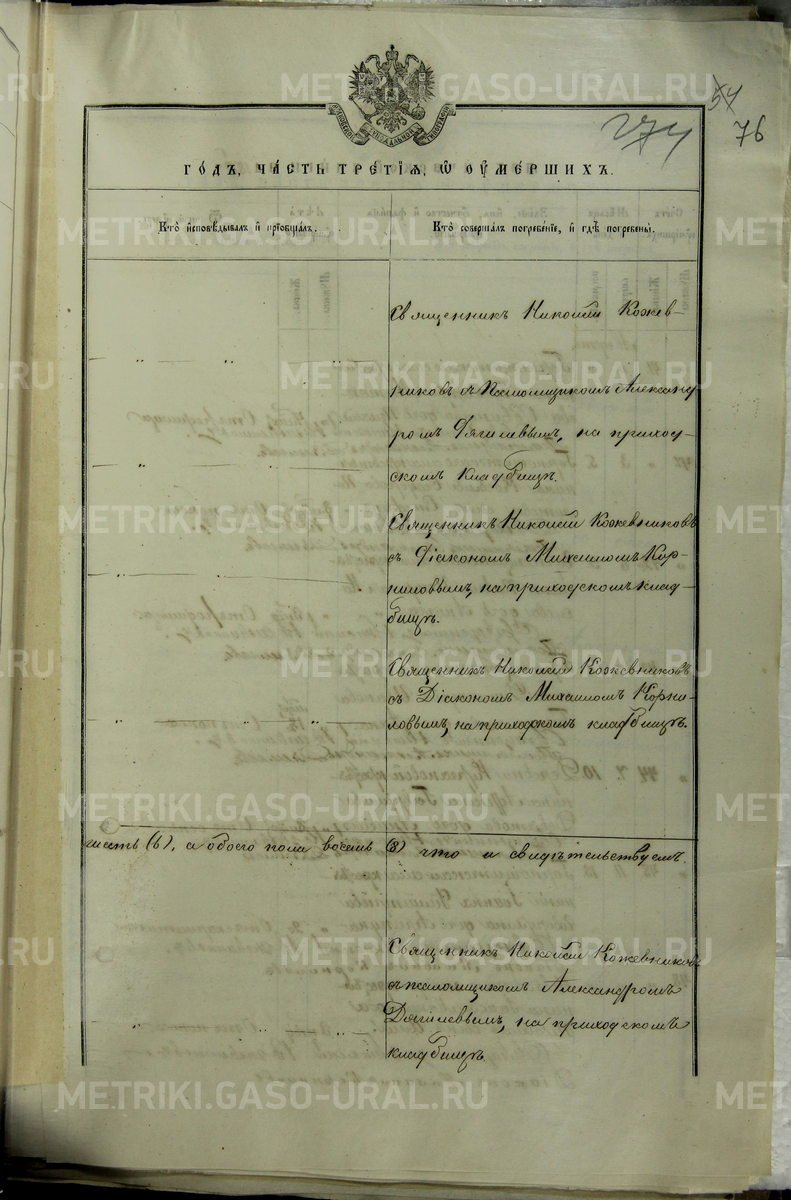 54
274
76
ГОДЪ, ЧАСТЬ ТРЕТІЯ, Ѡ ОУМЕРШИХЪ.
Кто исповѣдывалъ и пріобщалъ.
Кто совершалъ погребеніе, и гдѣ погребены.
Священникъ Николай Кожев-
никовъ съ Псаломщикомъ Александ
ромъ Дягилевымъ, на приход-
скомъ кладбищѣ.
Священникъ Николай Кожевниковъ
съ Діакономъ Михаиломъ Кор-
ниловымъ, на приходскомъ клад-
бищѣ.
Священникъ Николай Кожевниковъ
съ Діакономъ Михаиломъ Корни-
ловымъ, на приходскомъ кладбищѣ.
шесть (6), а обоего пола восемь (8) что и свидѣтельствуемъ.
Священникъ Николай Кожевниковъ
съ псаломщикомъ Александромъ
Дягилевымъ, на приходскомъ
кладбищѣ.
METRIKI.GASO-URAL.RU